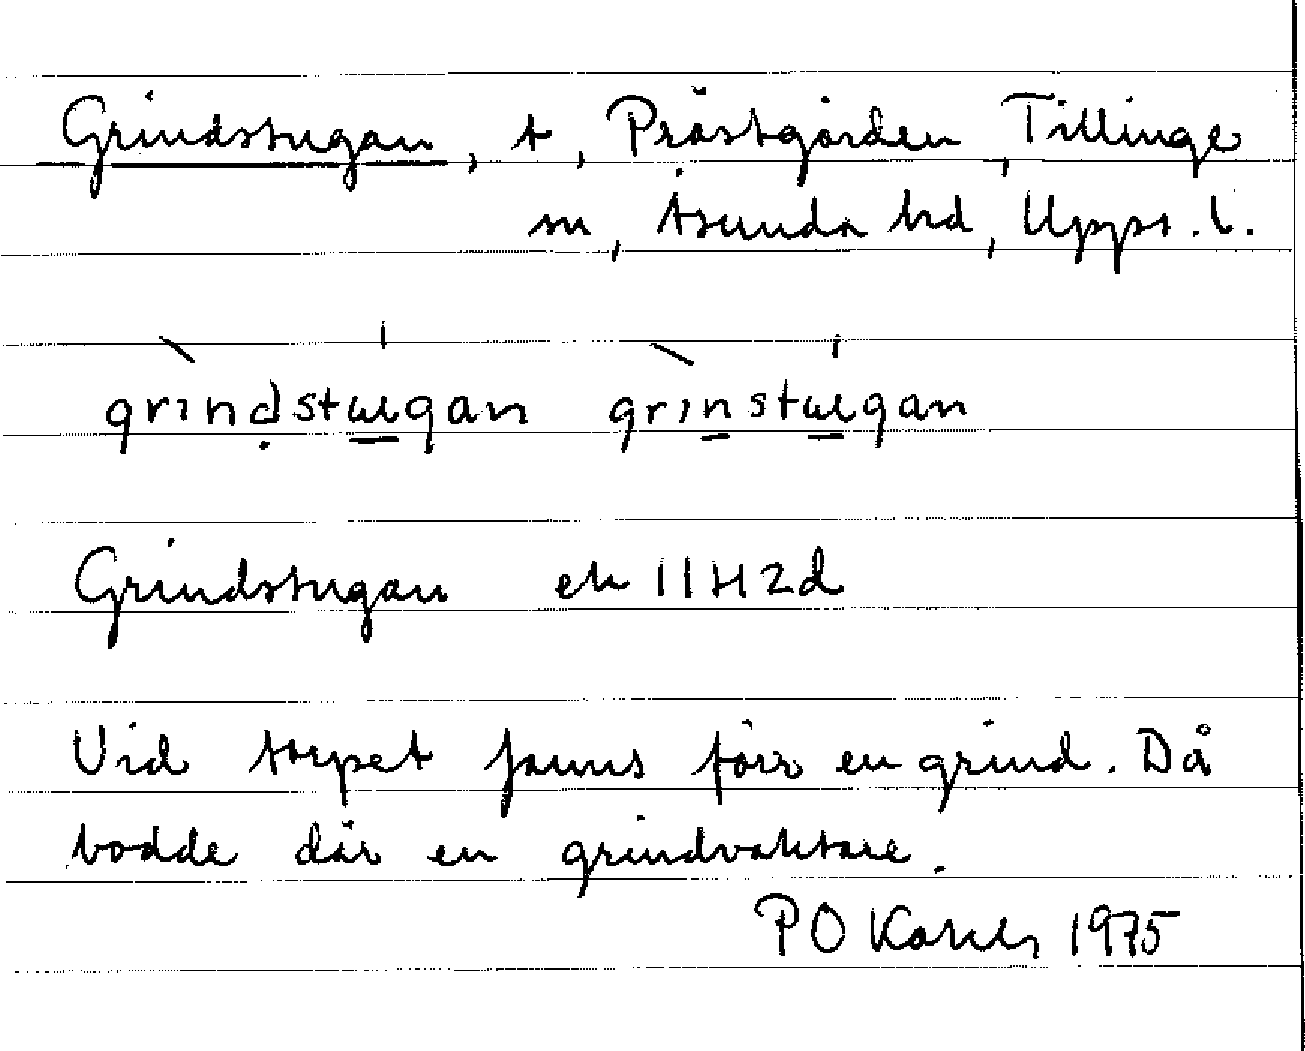 Grindstugan, t, Prästgården, Tillinge
sn, Åsunda hd, Upps. l.
grìndstu̲gan grìn̲stu̲gan
Grindstugan ek 11H2d
Vid torpet fanns förr en grind. Då
bodde där en grindvaktare.
P O 1975